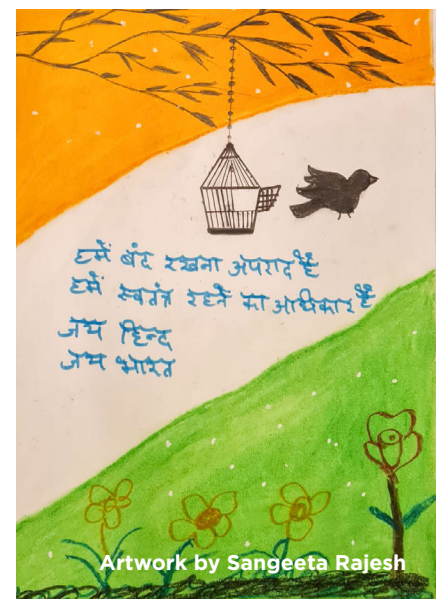 हमें बंद रखना अपराद है
हमें स्वतंत्र रहने का आधिकार है
जय हिन्द
जय भारत
Artwork by Sangeeta Rajesh